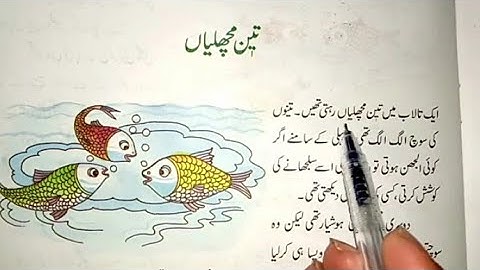 تین مچھلیاں
ایک تالاب میں تین مچھلیاں رہتی تھیں۔ تینوں
کی سوچ الگ الگ تھی کے سامنے اگر
کوئی الجھن ہوتی تو اسے سلجھانے کی
کوشش کرتی، کسی دیکھتی تھی۔
دوسری ہوشیار تھی لیکن وہ
ویسا ہی کرلیا